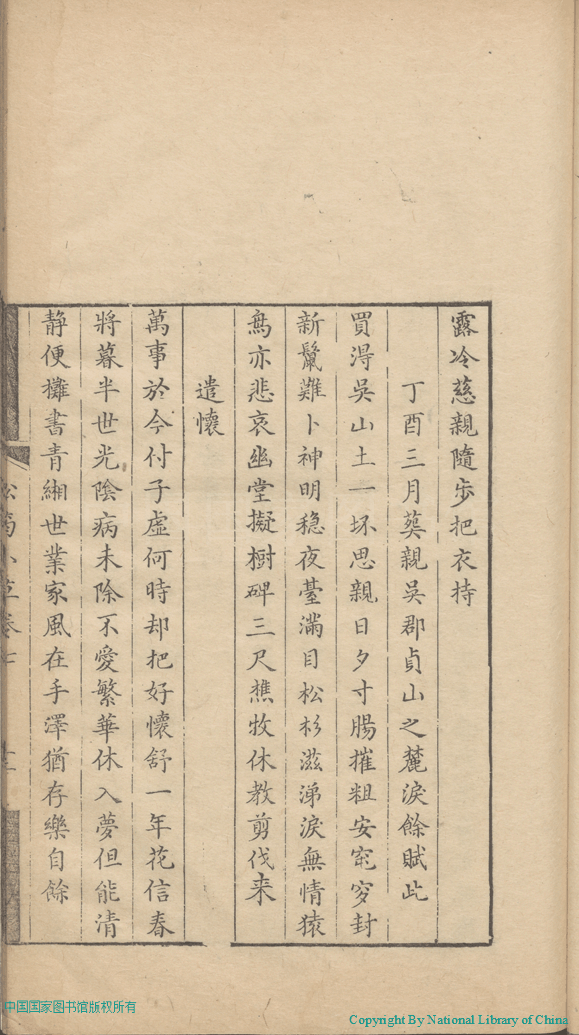 露冷慈親隨步把衣持
丁酉三月葬親吳郡貞山之麓淚餘賦此
買淂吳山土一坏思親日夕寸腸摧粗安窀穸封
新鬣難卜神明穏夜臺滿目松杉滋涕淚無情猿
鳥亦悲哀幽堂擬樹碑三尺樵牧休教剪伐来
遣懷
萬事於今付子虛何時却把好懷舒一年花信春
將暮半世光陰病未除不愛繁華休入夢但能清
静便攤書青緗世業家風在手澤猶存樂自餘
松筠小草卷七
中国国家图书馆版权所有
Copyright By National Library of China